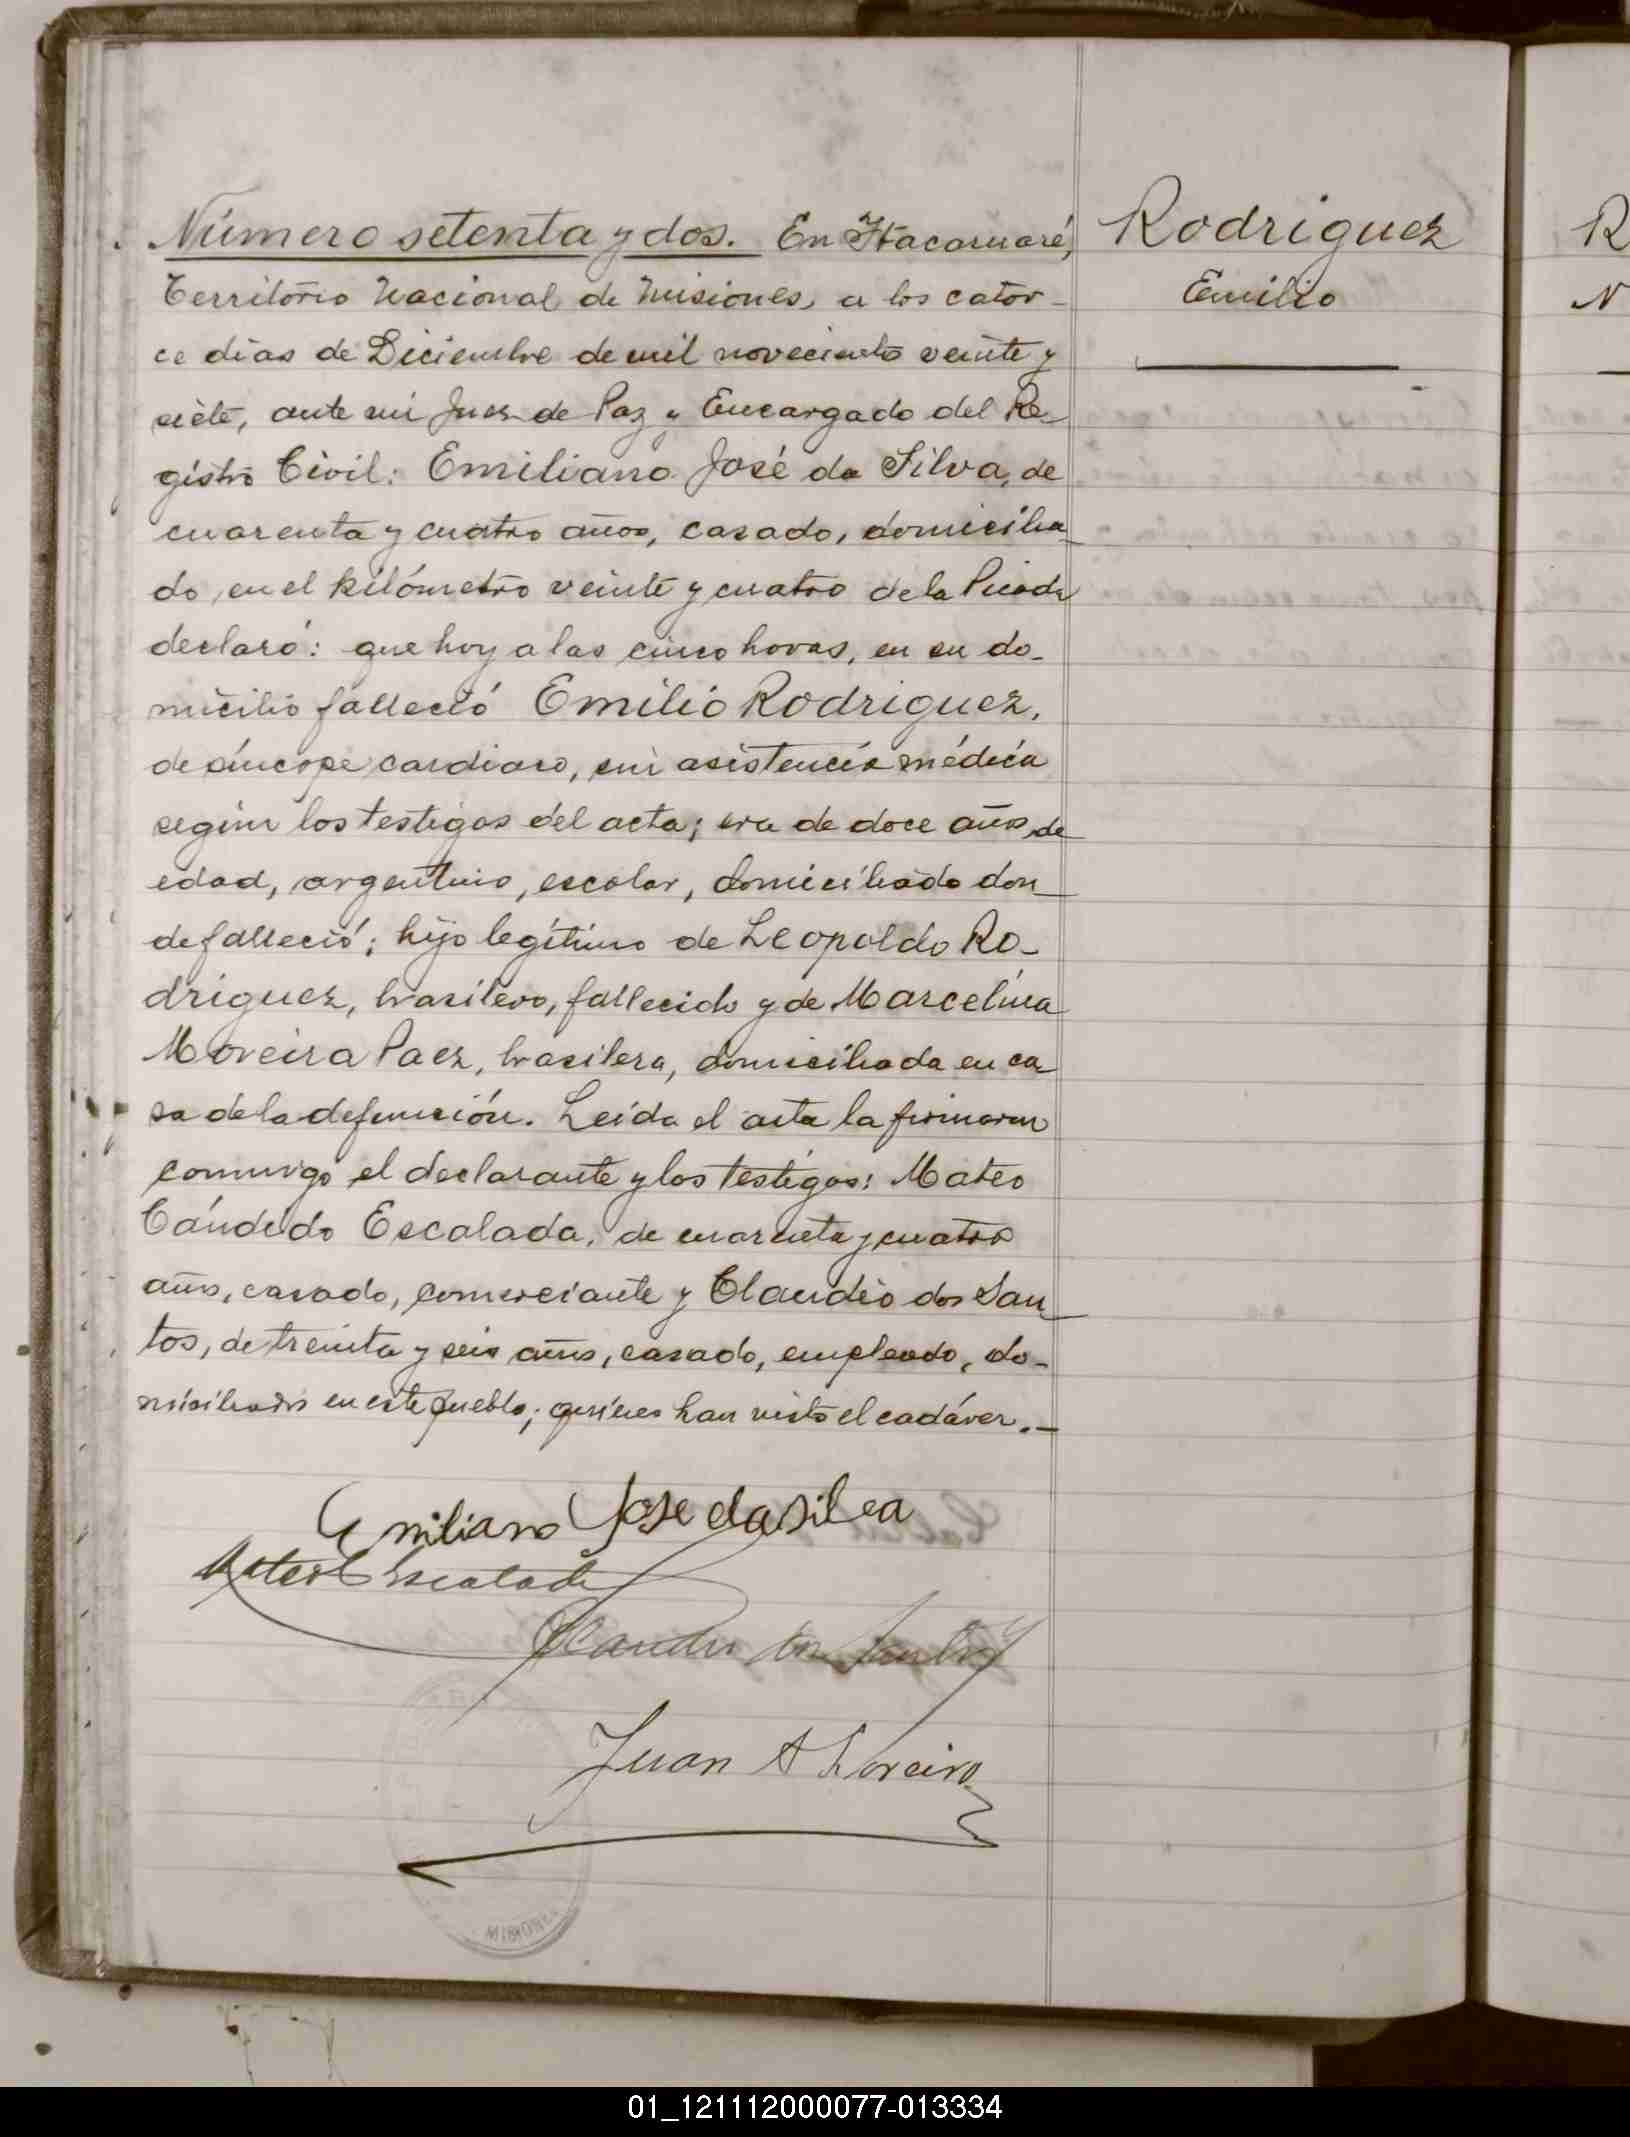 Número setenta y dos. En Itacaruaré,
Territorio Nacional de Misiones, a los cator-
ce días de Diciembre de mil novecientos veinte y
siete, ante mi Juez de Paz y Encargado del Re-
gistro Civil: Emiliano José da Silva, de
cuarenta y cuatro años, casado, domicilia-
do, en el kilómetro veinte y cuatro de la Picada
declaró: que hoy a las cinco horas, en su do-
micilio falleció Emilio Rodriguez,
de síncope cardiaco, sin asistencia médica
según los testigos del acta; era de doce años de
edad, argentino, escolar, domiciliado don-
de falleció; hijo legítimo de Leopoldo Ro-
driguez, brasilero, fallecido y de Marcelina
Moreira Paez, brasilera, domiciliada en ca-
sa de la defunción. Leida el acta la firmaron
conmigo el declarante y los testigos: Mateo
Cándido Escalada, de cuarenta y cuatro
años, casado, comerciante y Claudio dos San-
tos, de treinta y seis años, casado, empleado, do-
miciliados en este pueblo; quienes han visto el cadáver.-
Emiliano Jose da silva
Mateo C Escalada
Claudio dos Santos
Juan A
MISIONES
Rodriguez
Emilio
R
N
01_121112000077-013334